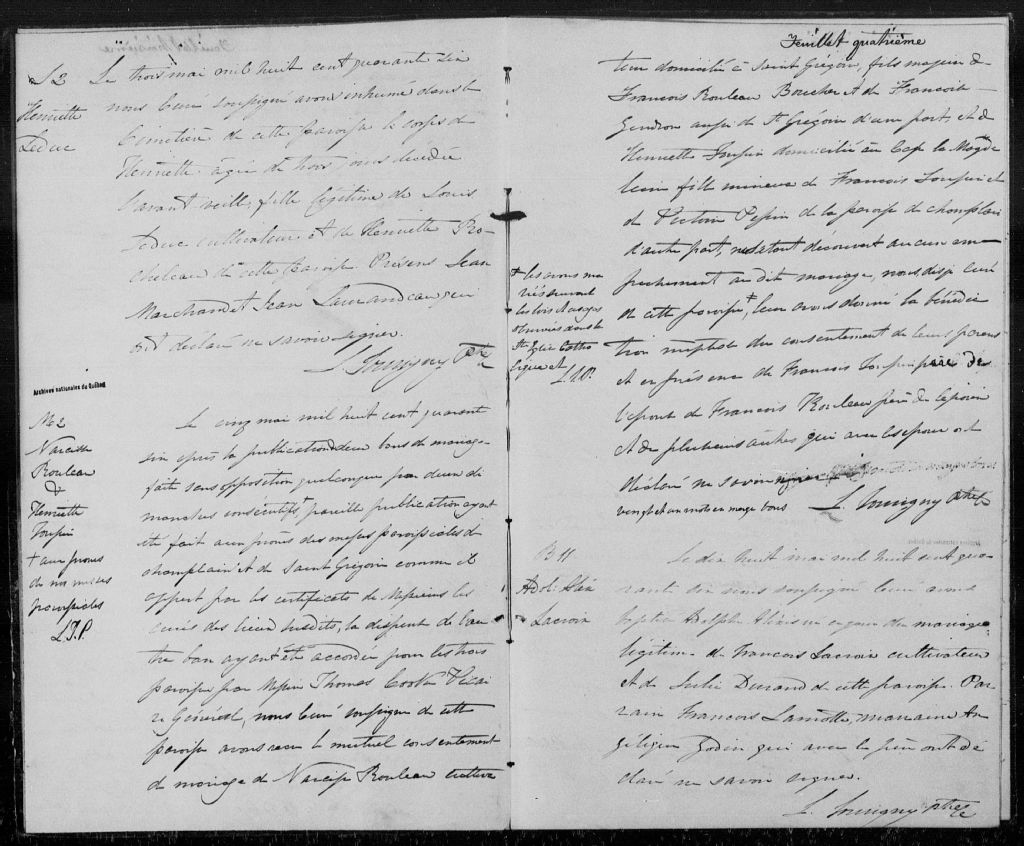 S 2
Henriette
Leduc
Le trois mai mil huit cent quarante six
nous Curé soussigné avons inhumé dans le
Cimetière de cette Paroisse le corps de
Henriette agée de trois jours decédée
l'avant veille, fille légitime de Louis
Leduc cultivateur et de Henriette Ro-
cheleau de cette Paroisse. Présens Jean
Marchand et Jean Laurandeau qui
ont déclaré ne savoir signer.
L. Souvigny Ptre
Archives nationales du Québec
M 2
Narcisse
Rouleau
&
Henriette
Toupin
+ aux prones
de nos messes
paroissiales
L.S.P.
Le cinq mai mil huit cent quarante
six après la publication de deux bans de mariage
faite sans opposition quelconque par deux di
manches consécutifs + pareille publication ayant
été fait aux prones des messes paroissiales de
Champlain et de Saint Grégoire comme il
appert par les certificats de Messieurs les
curés des lieux susdits, la dispense de l'au
tre ban ayant été accordée pour les trois
paroisses par Messire Thomas Cooke Vicai
re Général, nous Curé soussigné de cette
paroisse avons recu le mutuel consentement
de mariage de Narcisse Rouleau cultiva
Feuillet quatrième
teur domicilié à Saint Grégoire, fils majeur de
Francois Rouleau Boucher et de Francoise
Gendron aussi de St Grégoire d'une part, et de
Henriette Toupin domiciliée au Cap la Magde
leine fille mineure de Francois Toupin et
de Victoire Pepin de la paroisse de Champlain
d'autre part, ne s'étant découvert aucun em
pechement au dit mariage, nous dit Curé
de cette paroisse + leur avons donné la bénédic
tion nuptiale du consentement de leurs parens
et en présence de Francois Toupin père de
l'epouse de Francois Rouleau père de l'epoux
et de plusieurs autres qui avec les epoux ont
déclaré ne savoir signer
vingt et un mots en marge bons
L. Souvigny Ptre
+ les avons ma
riés suivant
les lois et usages
observés dans la
Ste Eglise Catho
lique et
L.S.P.
B 11
Adol. Aléxis
Lacroix
Le dix huit mai mil huit cent qua
rante six nous soussigné Curé avons
baptisé Adolphe Aléxis né en jour du mariage
légitime de Francois Lacroix cultivateur
et de Julie Durand de cette paroisse. Par
rain Francois Lamotte, marraine An
gélique Godin qui avec le père ont dé
claré ne savoir signer.
L. Souvigny Ptre